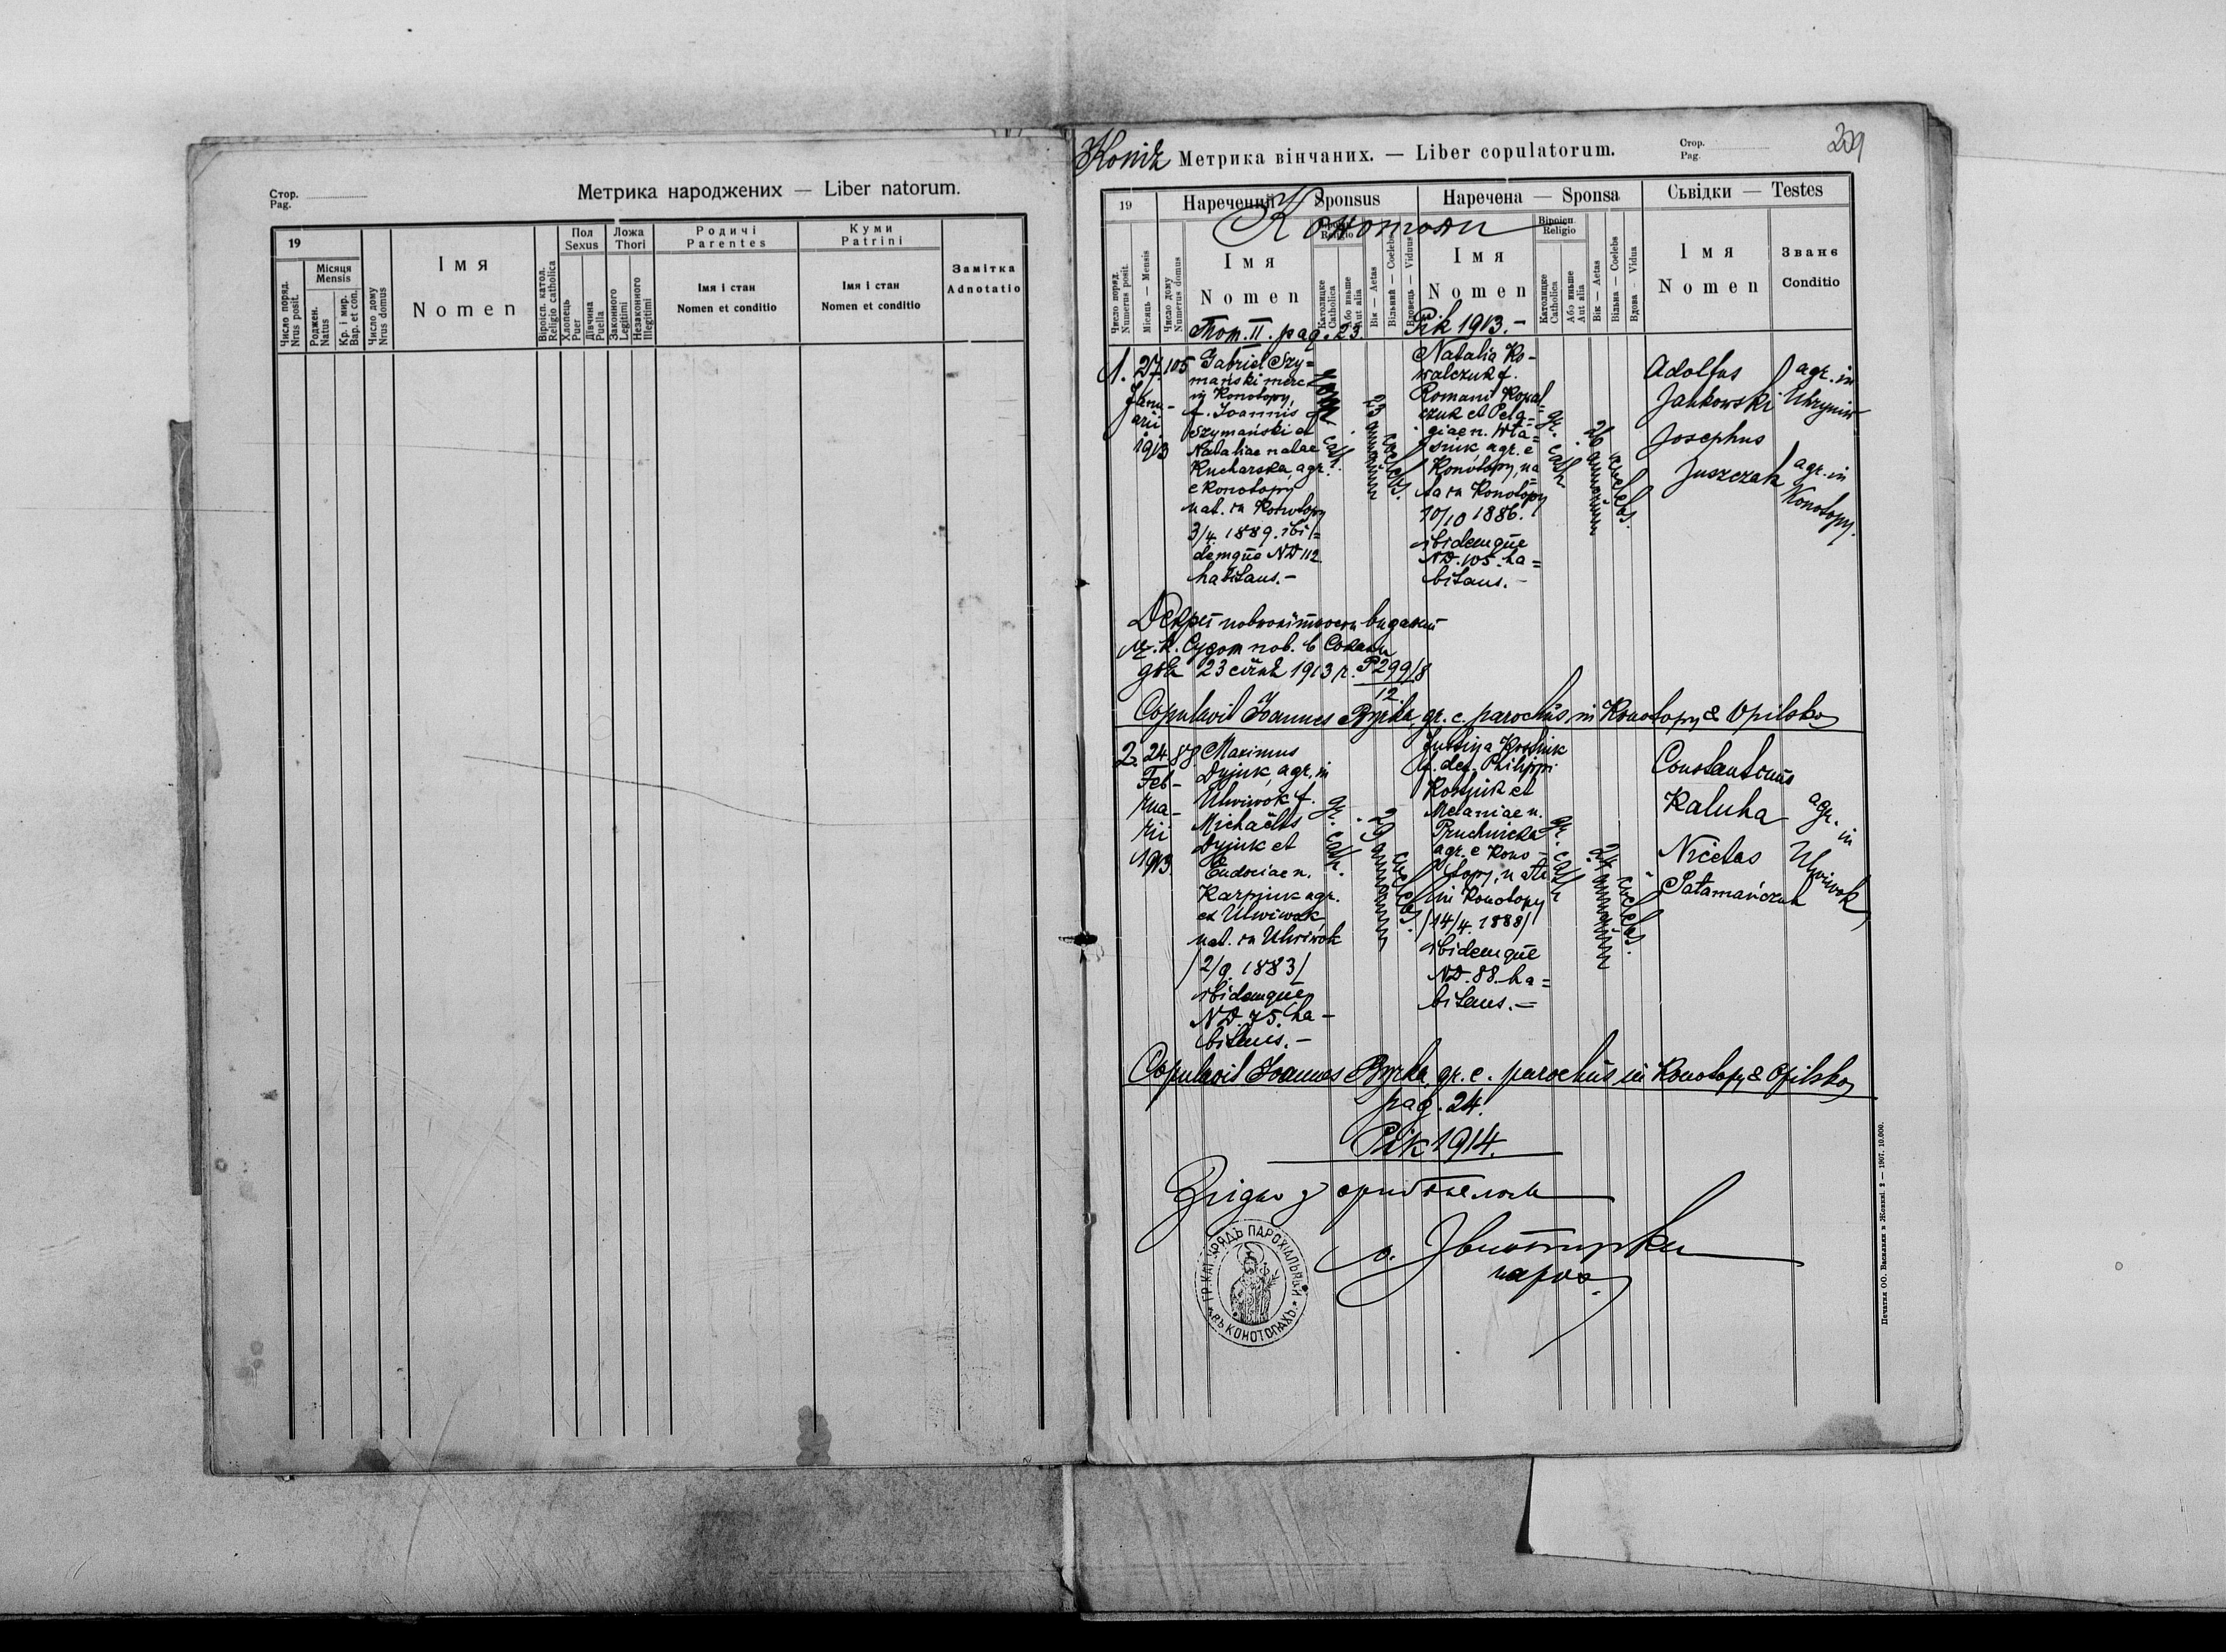 Стор.
Pag.
Метрика народжених — Liber natorum.
19
Число поряд.
Nrus posit.
Місяця
Mensis
Роджен.
Natus
Кр. і мир.
Bap. et con.
Число дому
Nrus domus
Імя
Nomen
Віроісп. катол.
Religio catholica
Пол
Sexus
Хлопець
Puer
Дівчина
Puella
Ложа
Thori
Законного
Legitimi
Незаконного
Illegitimi
Родичі
Parentes
Імя і стан
Nomen et conditio
Куми
Patrini
Імя і стан
Nomen et conditio
Замітка
Adnotatio
Копія Метрика вінчаних. — Liber copulatorum.
Стор.
Pag.
209
19
Наречений Sponsus
Наречена — Sponsa
Сьвідки — Testes
Конотопи
Число поряд.
Numerus posit.
Місяць — Mensis
Число дому
Numerus domus
Імя
Nomen
Religio
Католицке
Catholica
Або иньше
Aut alia
Вік — Aetas
Вільний — Coelebs
Вдовець — Viduus
Імя
Nomen
Віроісп.
Religio
Католицке
Catholica
Або иньше
Aut alia
Вік — Aetas
Вільна — Coelebs
Вдова — Vidua
Імя
Nomen
Званє
Conditio
Том. II. pag. 23.
Рік 1913.-
1.
27
Janu-
arii
1913
105
Gabriel Szy=
mański merc
in Konotopy,
f. Joannis
Szymański et
Nataliae natae
Kucharska, agr.
e Konotopy
nat. in Konotopy
3/4. 1889. ibi=
demque ND 112
habitans.-
cath.
23 annorum
coelebs.
Natalia Ko-
walczuk f.
Romani Kowal=
czuk et Pela=
giae n. Wła=
siuk, agr. e
Konotopy, na=
ta in Konotopy
10/10 1886.
ibidemque
ND. 105. ha=
bitans.-
gr. cath.
26 annorum
coelebs.
Adolfus
Jankowski
agr. in
Uhrynów
Josephus
Juszczak
agr. in
Konotopy.
Ц. К. Судом пов. в Сокали
дня 23 січня 1913 р. P 299/8
12
Copulavit Joannes Byrka, gr. c. parochus in Konotopy & Opilsko
2.
24
Feb-
rua-
rii
1913.
88.
Maximus
Dyjuk, agr. in
Uhwiwok f.
Michaëlis
Dyjuk et
Eudociae n.
Karpjuk agr.
ex Uhwiwok
nat. in Uhwiwok
/2/9. 1883/
ibidemque
ND. 75. ha-
bitans.-
gr. cath.
29 annorum
coelebs.
f. def. Philippi
et
Melaniae n.
Pruchnicka
agr. e Kono-
topy, nata
in Konotopy
/14/4. 1888/
ibidemque
ND. 88. ha=
bitans.-
gr. cath.
24 annorum
coelebs.
Constantinus
Kaluha
agr.
in
Nicetas
Uhwiwok
Copulavit Joannes Byrka, gr. c. parochus in Konotopy & Opilsko
pag. 24.
Рік 1914.
Згідно з оригіналом
парох.
ГР. КАТ. УРЯДЪ ПАРОХІАЛЬНЫЙ
ВЪ КОНОТОПАХЪ
Печатня ОО. Василиян в Жовкві. 2 — 1907. 10.000.